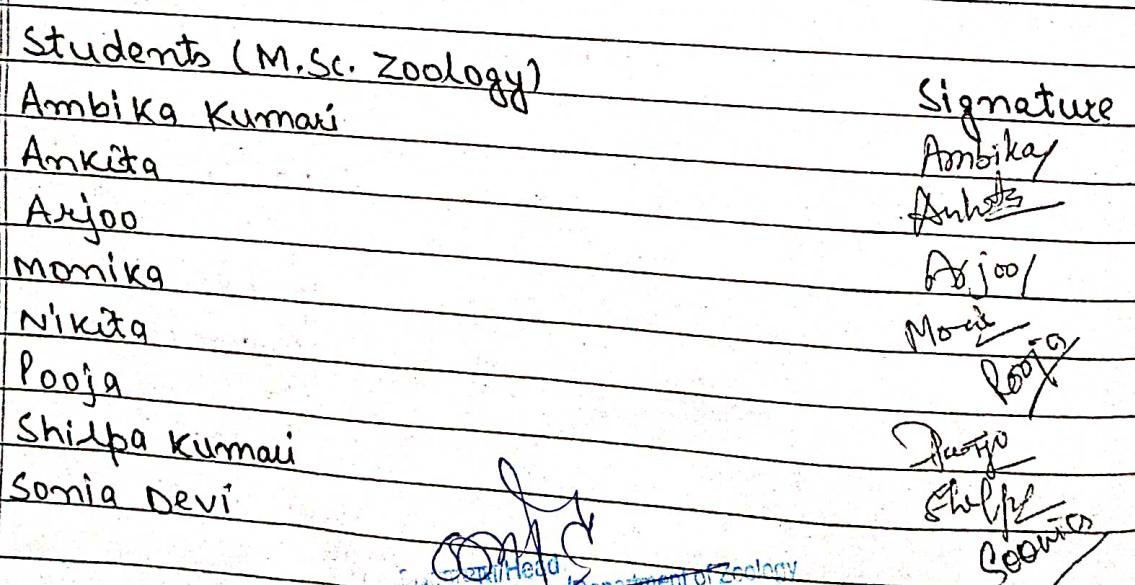 Students (M.Sc. Zoology) Signature
Ambika Kumari Ambika
Ankita
Arjoo Arjoo
Monika
Nikita Pooja
Pooja
Shilpa Kumari
Sonia Devi Soonia
Head Department of Zoology